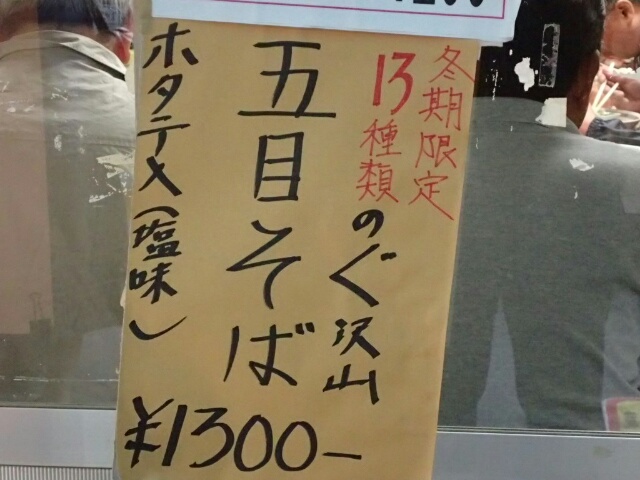 冬期限定
13種類
のぐ沢山
五目そば
ホタテ入(塩味)
¥1300-